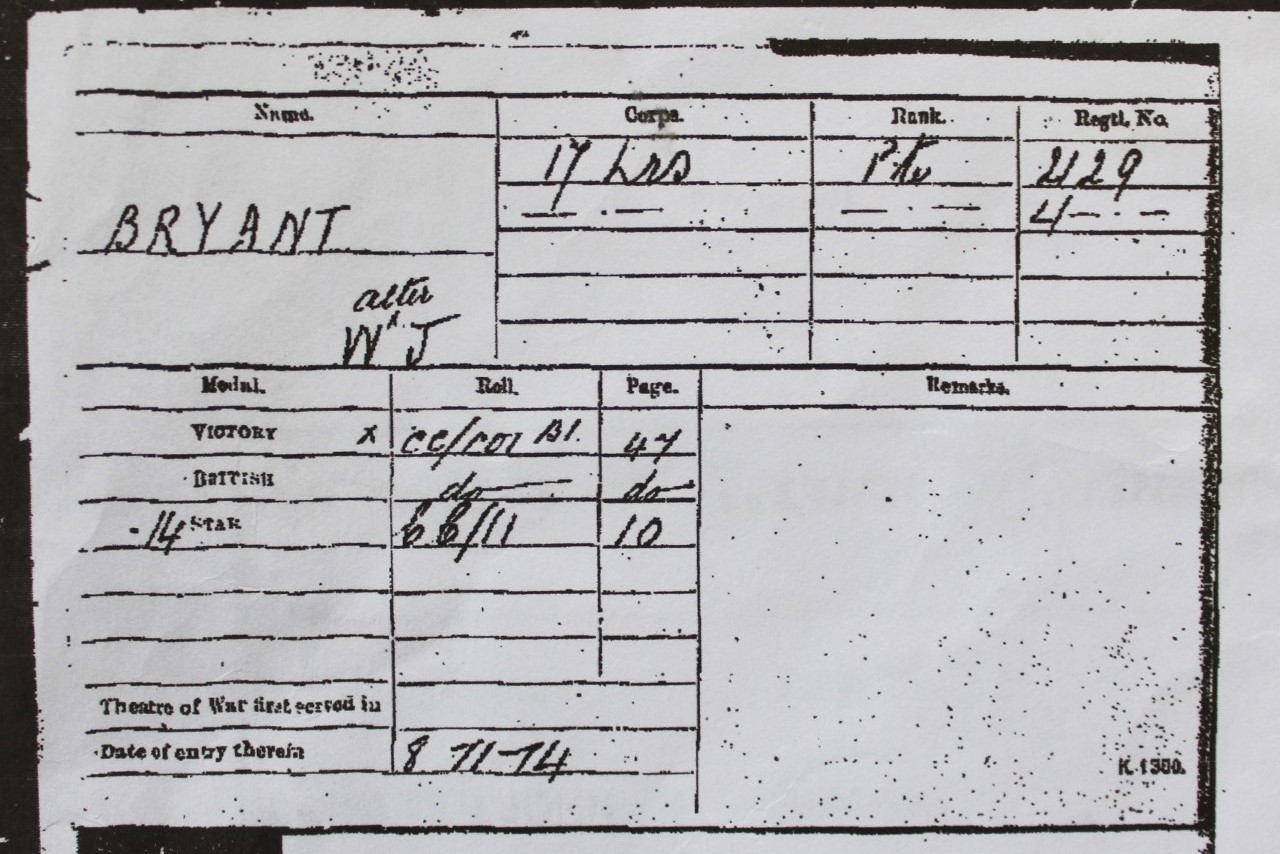 Name. Corps. Rank. Regtl. No.
17 Lrs Pte 2129
— . — — . — 4— . —
BRYANT
after
W J
Medal. Roll. Page. Remarks.
VICTORY x CC/101 B1. 47
BRITISH do do
-14 STAR 10
Theatre of War first served in
Date of entry therein 8-11-14
K. 1380.